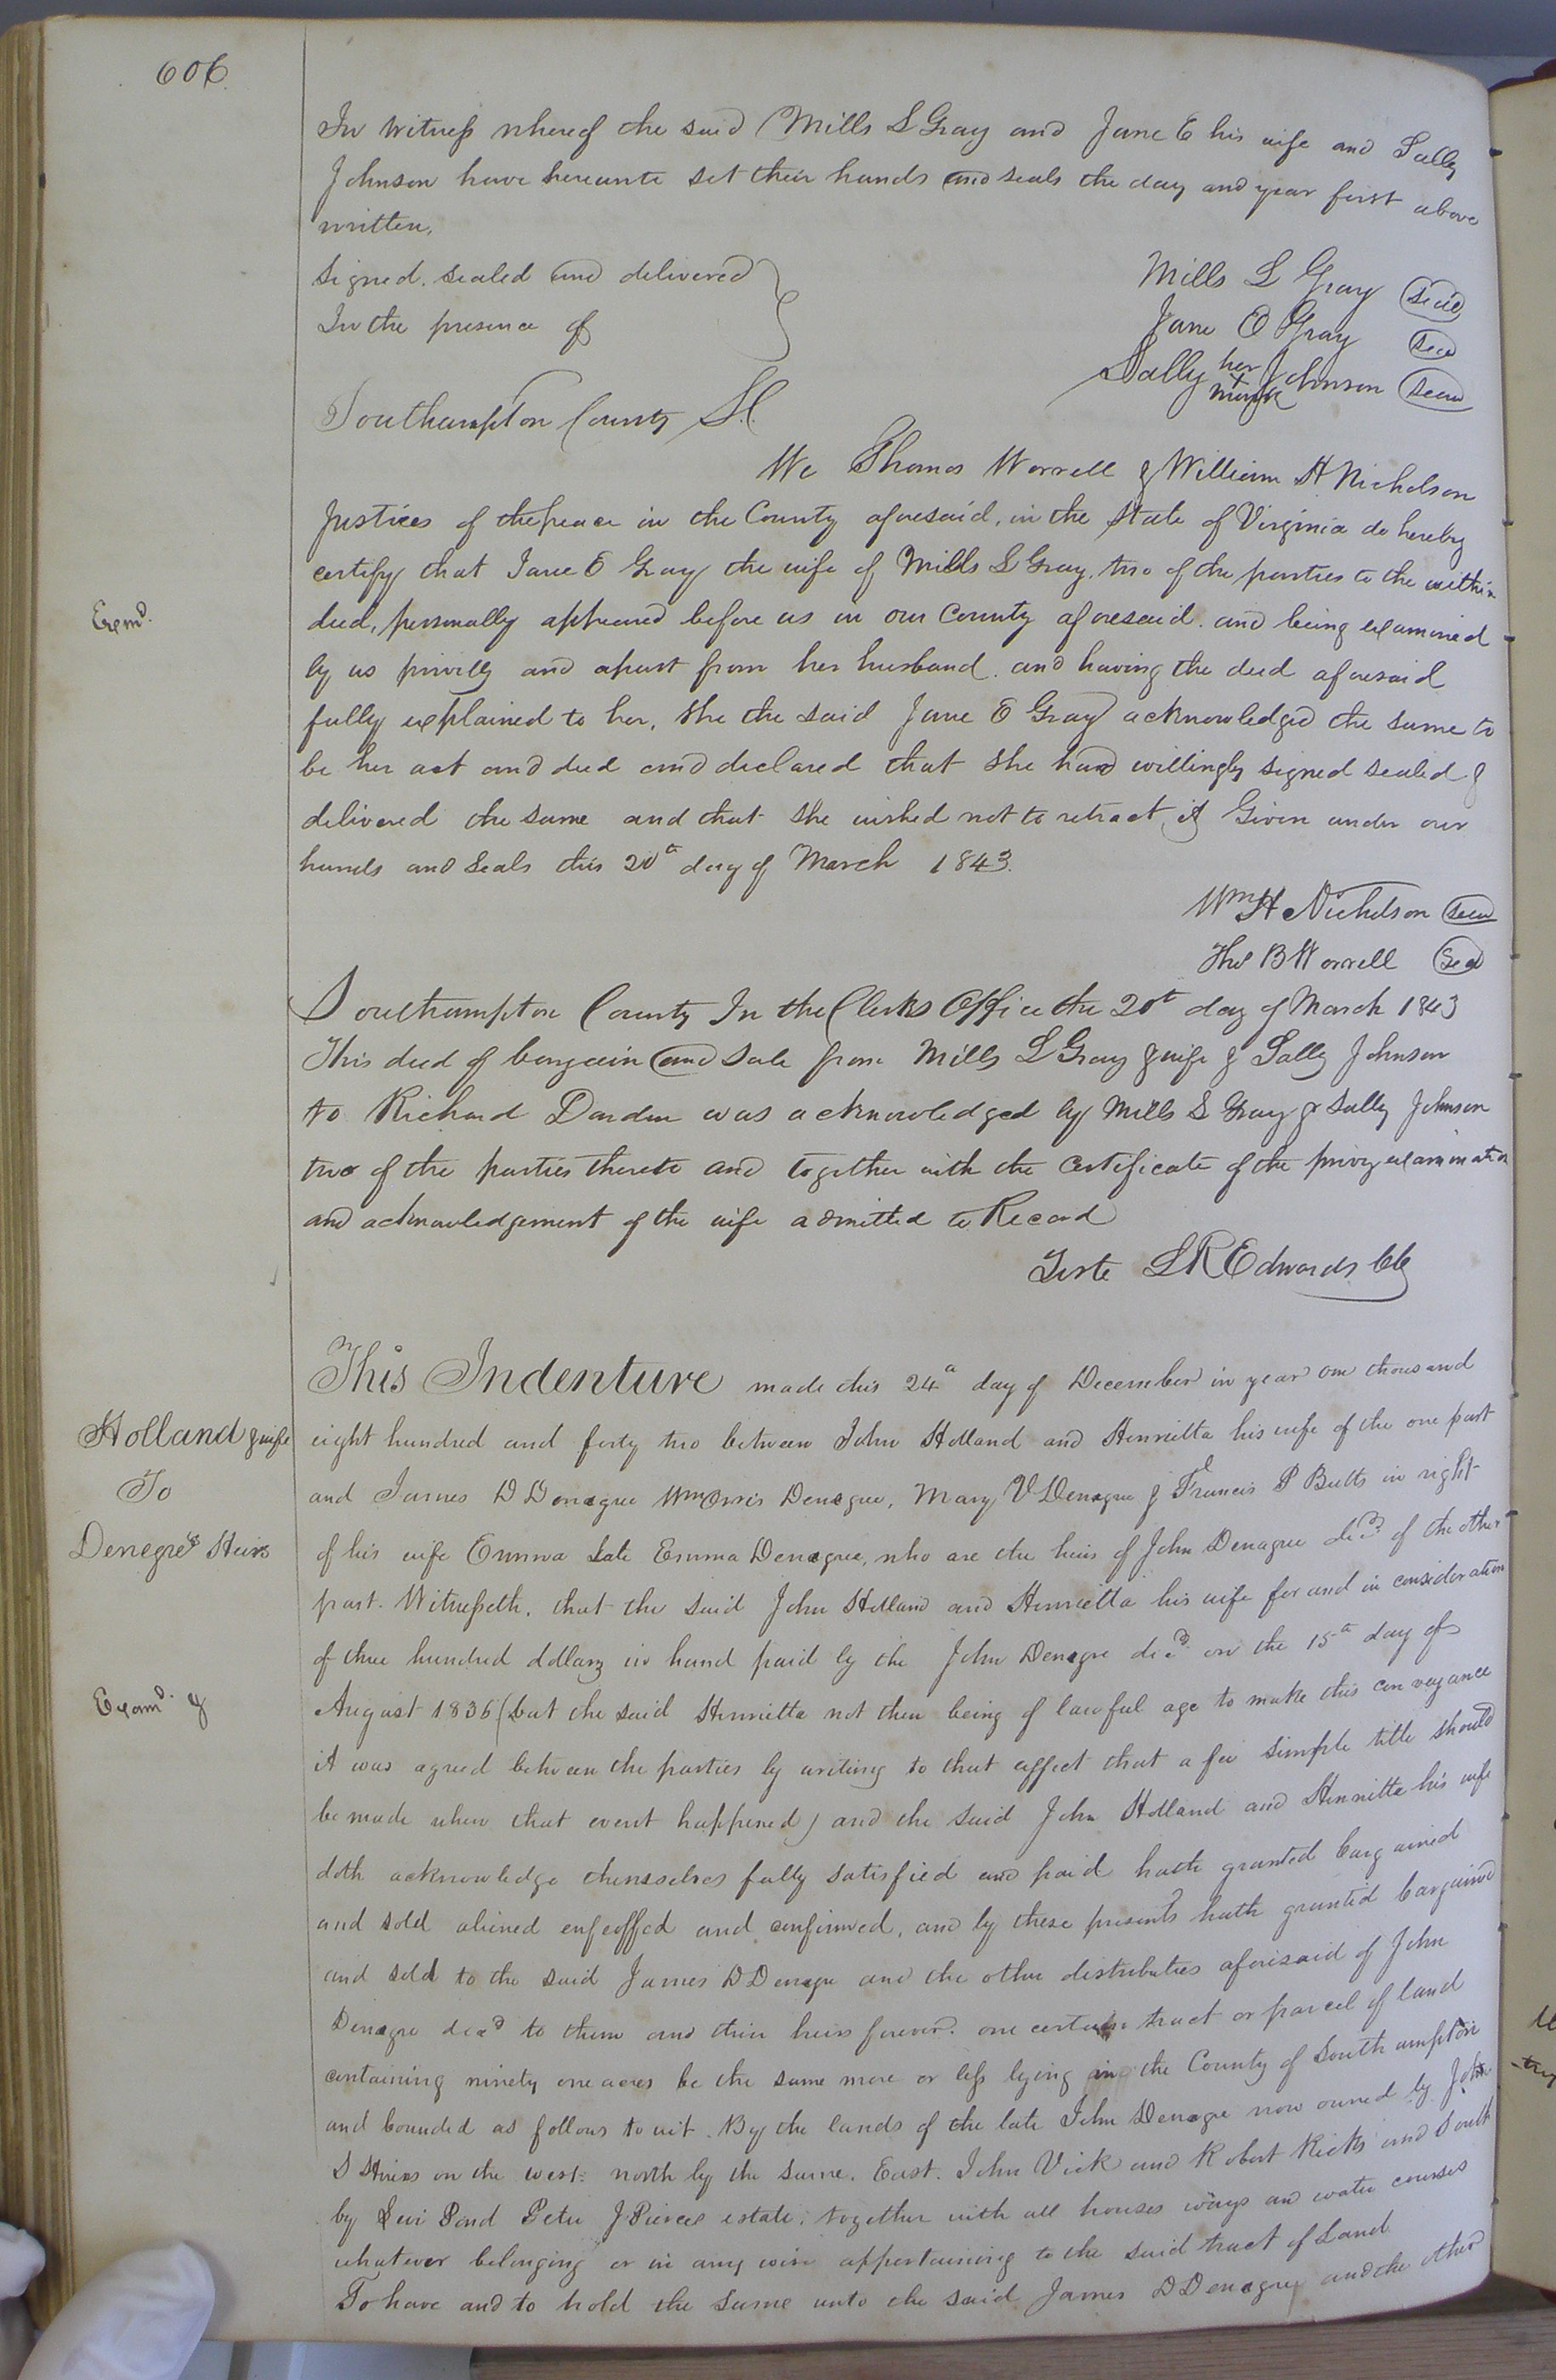 606
In Witness whereof the said Mills L Gray and Jane E his wife and Sally
Johnson have hereunto set their hands and seals the day and year first above
written,
Signed. sealed and delivered
In the presence of
Mills L Gray Seal
Jane E Gray Seal
Sally her + mark Johnson Seal
Southampton County Sc.
We Thomas Worrell & William H Nicholson
Justices of the peace in the County aforesaid, in the State of Virginia do hereby
certify that Jane E Gray the wife of Mills L Gray. two of the parties to the within
Exmd.
deed, personally appeared before us in our County aforesaid. and being examined
by us privily and apart from her husband. and having the deed aforesaid
fully explained to her, She the said Jane E Gray acknowledged the same to
be her act and deed and declared that she had willingly signed sealed &
delivered the same and that she wished not to retract it Given under our
hands and Seals this 20th day of March 1843.
Wm H Nicholson Seal
Ths B Worrell Seal
Southampton County In the Clerks Office the 20th day of March 1843
This deed of bargain and Sale from Mills L Gray & wife & Sally Johnson
to Richard Darden was acknowledged by Mills L Gray & Sally Johnson
two of the parties thereto and together with the Certificate of the privy examination
and acknowledgement of the wife admitted to Record
Teste L R Edwards Clk
This Indenture made this 24th day of December in year one thousand
Holland & wife
eight hundred and forty two between John Holland and Henrietta his wife of the one part
To
and James D Denegree Wm Orris Denegree, Mary V Denegre & Francis P Butts in right
Denegre's Heirs
of his wife Emma late Emma Denegree, who are the heirs of John Denagree decd of the other
part. Witnesseth, that the said John Holland and Henrietta his wife for and in consideration
of three hundred dollars in hand paid by the John Denegre decd on the 15th day of
Examd. &
August 1836 (but the said Henrietta not then being of lawful age to make this conveyance
it was agreed between the parties by writing to that effect that a fee simple title should
be made when that event happened) and the said John Holland and Henrietta his wife
doth acknowledge themselves fully satisfied and paid hath granted bargained
and sold aliened enfeoffed and confirmed, and by these presents hath granted bargained
and sold to the said James D Denegre and the other distributees aforesaid of John
Denegre decd to them and their heirs forever. one certain tract or parcel of land
containing ninety one acres be the same more or less lying in the County of Southampton
and bounded as follows to wit. By the lands of the late John Denegre now owned by John
S on the west. north by the same. East. John Vick and Robert Ricks and South
by Levi Pond Peter J Pierces estate, together with all houses ways and water courses
whatever belonging or in any wise appertaining to the said tract of Land
To have and to hold the same unto the said James D Denegree and the other